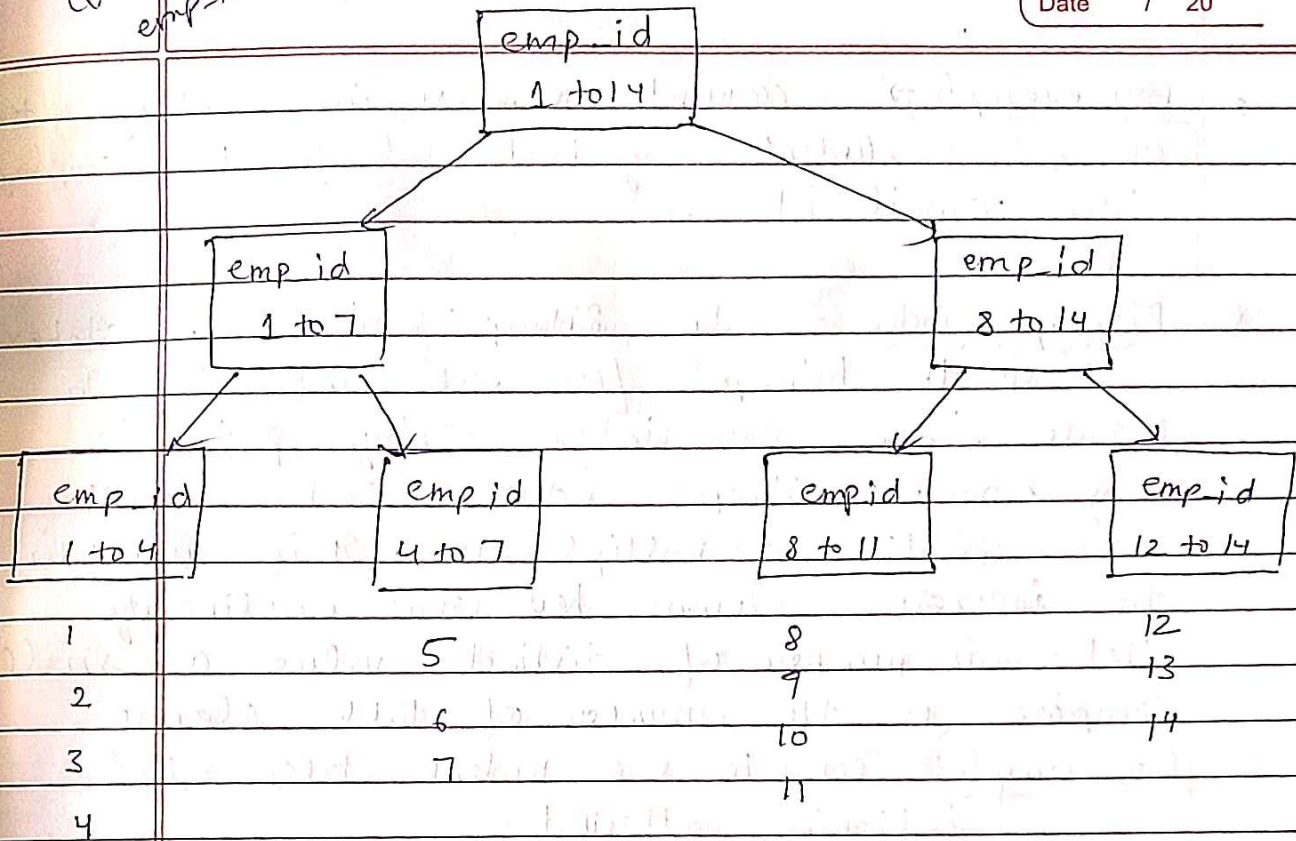 emp-
Date / 20
emp_id
1 to 14
emp_id
1 to 7
emp_id
8 to 14
emp_id
1 to 4
emp id
4 to 7
emp id
8 to 11
emp_id
12 to 14
1
2
3
4
5
6
7
8
9
10
11
12
13
14